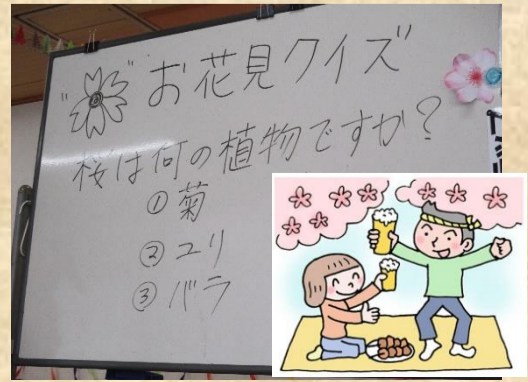 "お花見クイズ"
桜は何の植物ですか?
①菊
②ユリ
③バラ